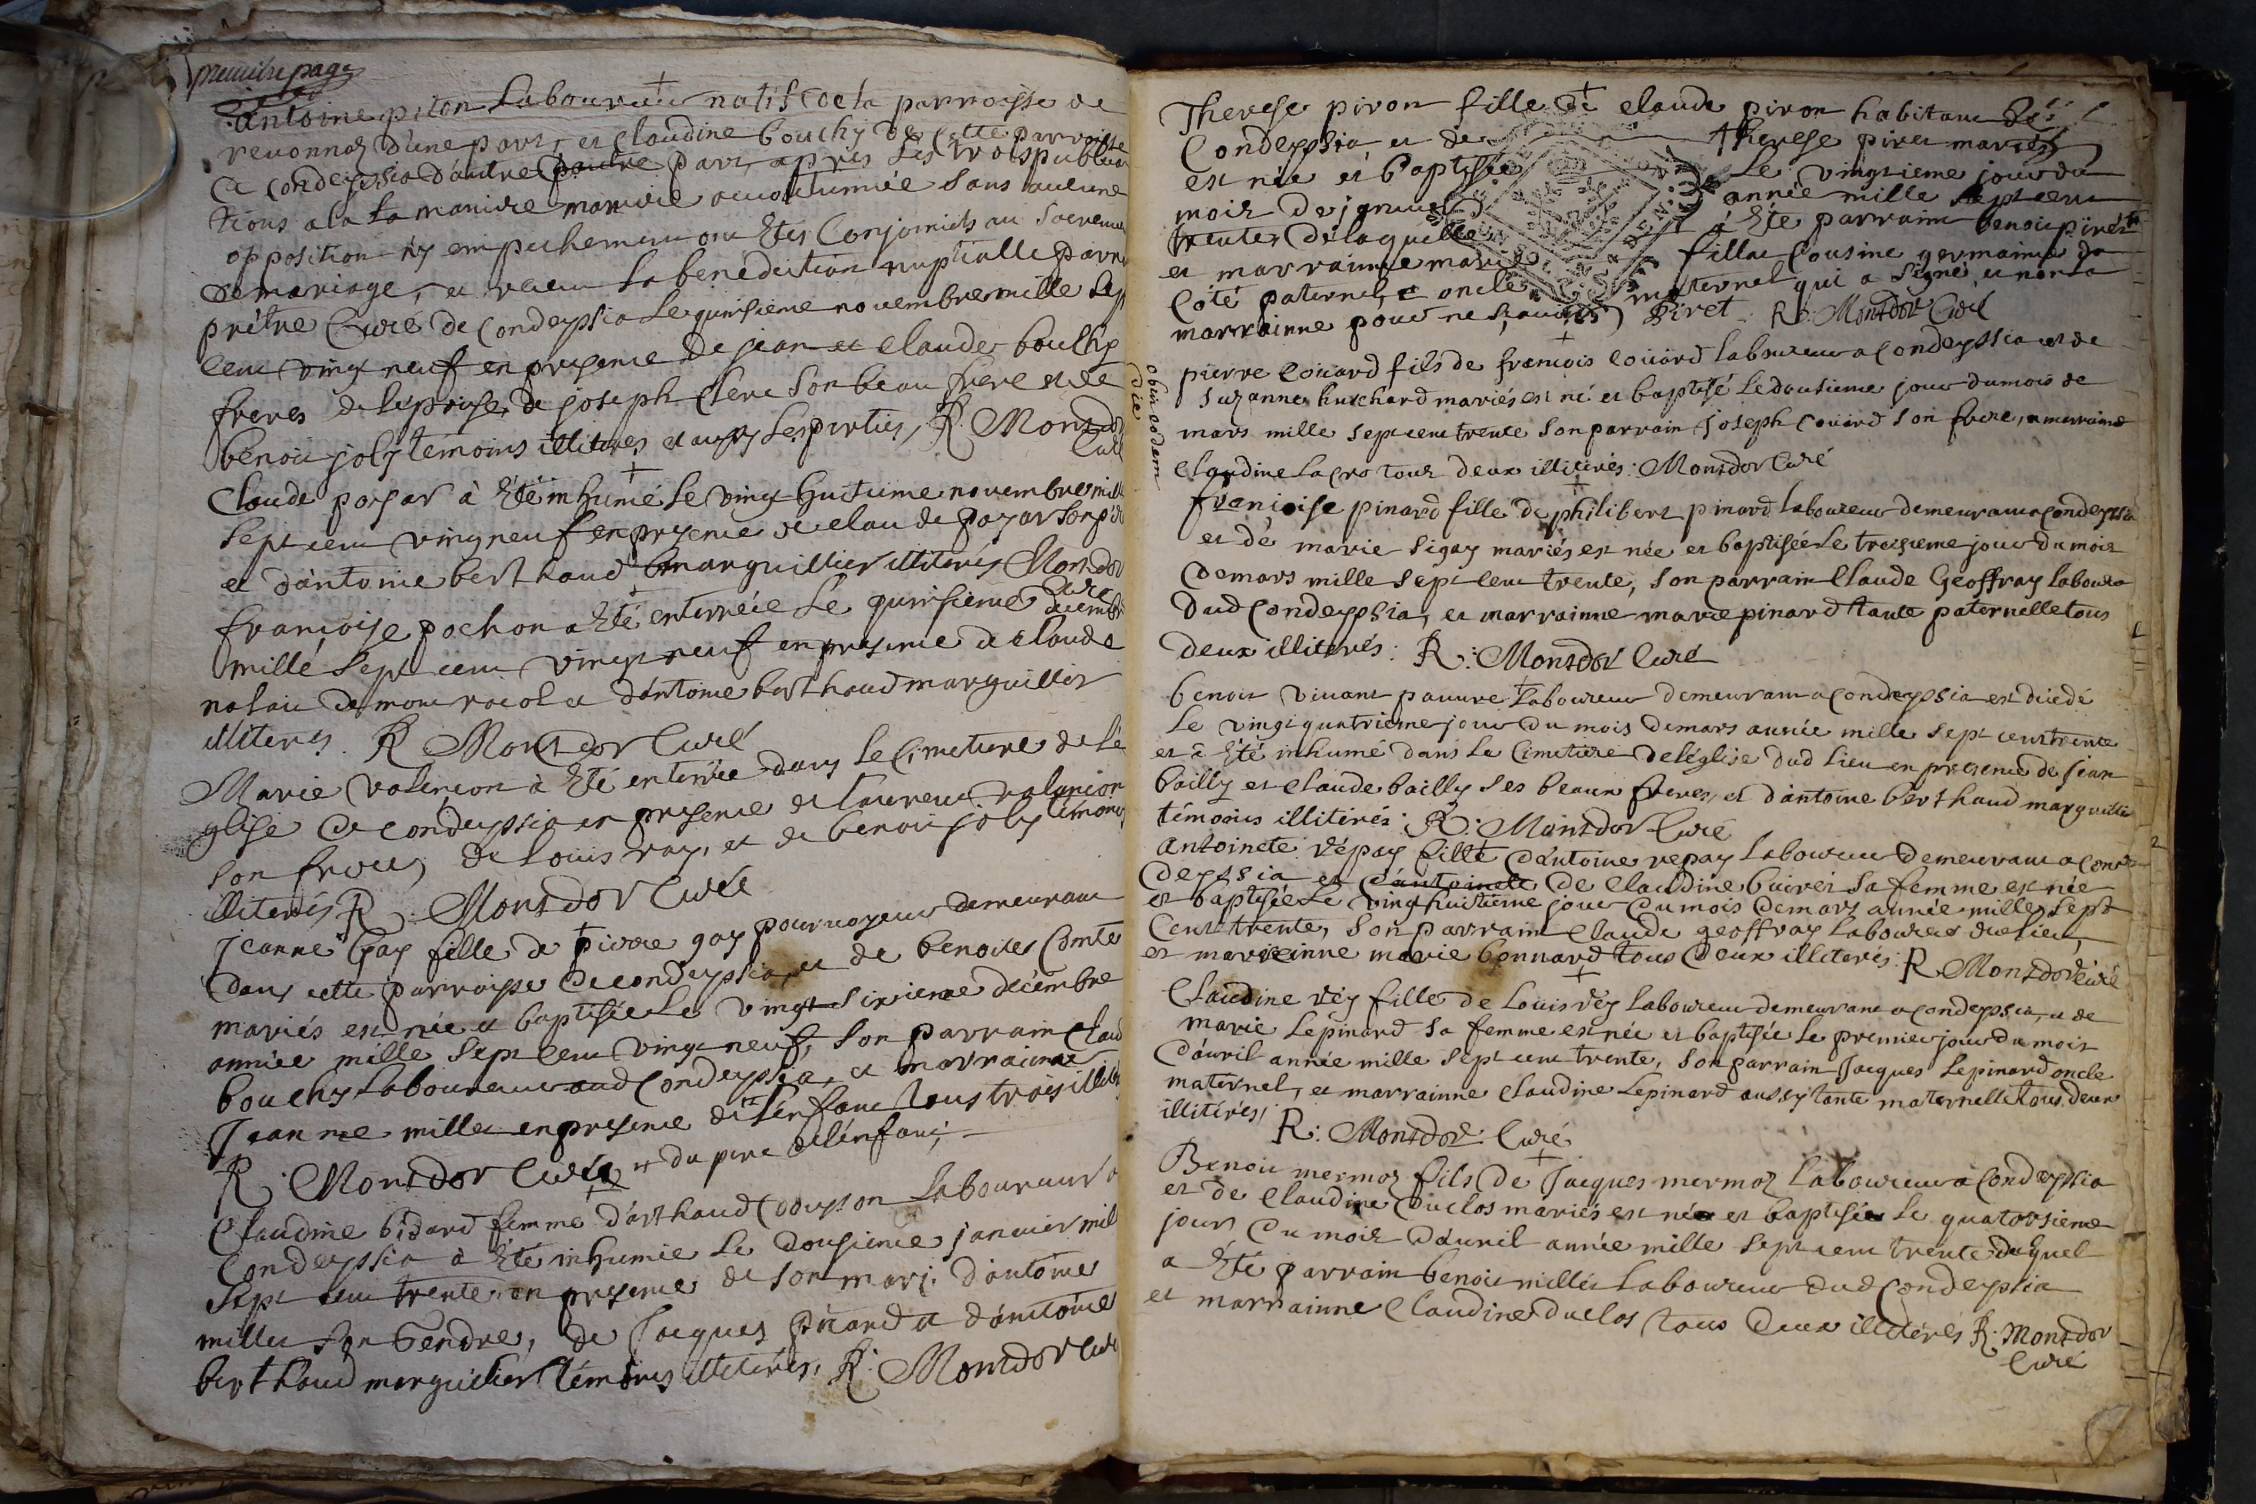 premiere page
Antoine piton Laboureur natif de la parroisse de
reuonnaz d'une part, et Claudine bouchy de Cette parroisse
de Condeyssia d'autre part, apres les trois publica
tions a la maniere accoutumée sans aucune
opposition ny empechement ont Etés Conjoincts au Sacrement
de mariage, et receu la benediction nuptialle par
prétre Curé de Condeyssia le quinsieme novembre mille Sept
cent vingt neuf en presence de jean et Claude bouchy
freres de l'epouse, de joseph Clerc son beau frere et de
benoit joly témoins illiterés et aussy les parties, R. Montdor
Curé
Claude poysar à Eté inhumé le vingt huitieme novembre mille
sept cent vingneuf en presence de claude poyar son pere
et d'antoine berthaud marguillier illiterés Montdor
Curé
françoise pochon a Eté enterrée le quinsieme decembre
mille sept cent vingt neuf en presence de claude
et d'antoine berthaud marguillier
illiterés. R Montdor Curé
Marie valençon à Eté enterrée dans le Cimetiere de l'é
glise de Condeyssia en presence de laurent valançon
son frere, de Louis ray, et de benoit joly témoins
illiterés R. Montdor Curé
jeanne Gay fille de pierre gay pourvoyeur demeurant
dans cette parroisse de Condeyssia, et de benoite Comte
mariés est née et baptisée le vingt sixieme décembre
année mille sept cent vingt neuf, son parrain Claude
bouchy Laboureur aud Condeyssia, et marrainne
Jeanne millet en presence de l'enfant tous trois illiterés
R. Montdor Curé + du pere de l'enfant;
Claudine bidard femme d'arthaud Laboureur a
Condeyssia à Eté inhumée le dousieme janvier mil
sept cent trente en presence de son mari, d'antoine
millet son Gendre, de Jacques picard et d'antoine
berthaud marguillier témoins illiterés. R. Montdor Curé
Therese piron fille de claude piron habitant de
Condeyssia et de Therese piret mariés
est née et baptisée Le vingtieme jour du
mois de janvier année mille sept cent
trente, de laquelle à Eté parrain benoit piret
et marrainne marie fillat Cousine germaine du
Côté paternel, et oncle maternel qui a signé, et non la
marrainne pour ne sçavoir, Piret. R. Montdor Curé
obiit eodem
die
pierre Couard fils de françois Couard Laboureur a Condeyssia et de
Suzanne huchard mariés est né et baptisé le dousieme jour du mois de
mars mille sept cent trente son parrain Joseph Couard son frere, et marrainne
Claudine Lacro tous deux illiterés: Montdor Curé
françoise pinard fille de philibert pinard Laboureur demeurant a Condeyssia
et de marie sigay mariés est née et baptisée le treisieme jour du mois
de mars mille sept cent trente, son parrain Claude Geoffray Laboureur
dud Condeyssia, et marrainne marie pinard tante paternelle tous
deux illiterés: R. Montdor Curé
benoit vivant pauvre Laboureur demeurant a Condeyssia est décédé
Le vingt quatrieme jour du mois de mars année mille sept cent trente
et à Eté inhumé dans le Cimetiere de l'église dud Lieu en presence de Jean
bailly et claude bailly ses beaux freres, et d'antoine berthaud marguillier
témoins illiterés: R. Montdor Curé
antoinete répay fille d'antoine repay Laboureur demeurant a Con
deyssia et d'antoinete de Claudine buiret sa femme est née
et baptisée le vinghuitieme jour du mois de mars année mille sept
cent trente, son parrain Claude geoffray Laboureur dud Lieu,
et marrainne marie bonnard tous deux illiterés: R. Montdor Curé
Claudine réy fille de Louis réy Laboureur demeurant a Condeyssia, et de
marie Lepinard sa femme est née et baptisée le premier jour du mois
d'avril année mille sept cent trente, son parrain Jacques Lepinard oncle
maternel, et marrainne Claudine Lepinard aussy tante maternelle tous deux
illiterés, R: Montdor Curé
Benoit mermoz fils de Jacques mermoz Laboureur a Condeyssia
et de Claudine Duclos mariés est né et baptisé le quatorsieme
jour du mois d'avril année mille sept cent trente duquel
a Eté parrain benoit millet Laboureur dud Condeyssia
et marrainne Claudine Duclos tous deux illiterés R. Montdor
Curé